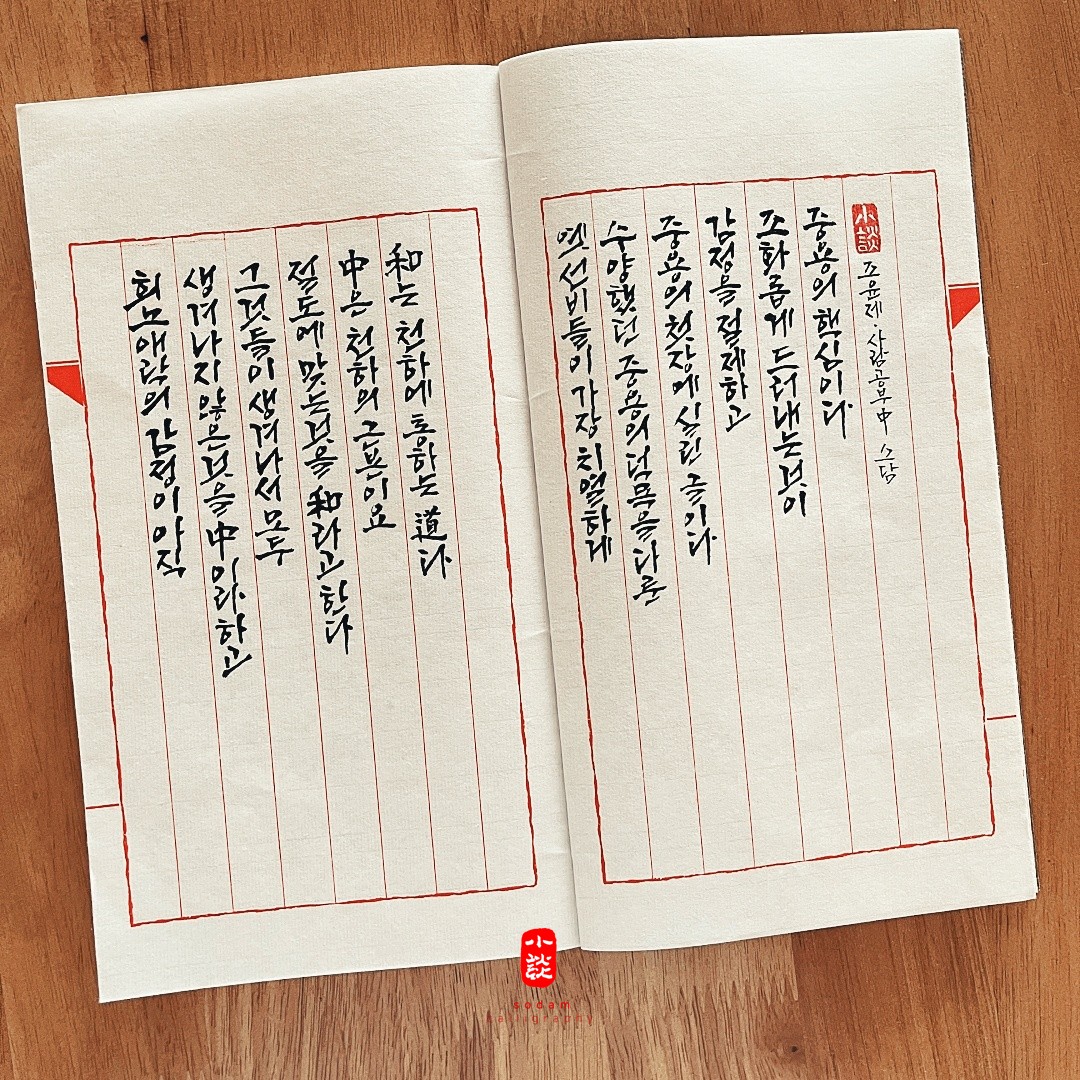 희노애락의 감정이 아직
생겨나지 않은 것을 中이라 하고
그것들이 생겨나서 모두
절도에 맞는 것을 和라고 한다
中은 천하의 근본이요
和는 천하에 통하는 道다
옛 선비들이 가장 치열하게
수양했던 중용의 덕목을 다룬
중용의 첫 장에 실린 글이다
감정을 절제하고
조화롭게 드러내는 것이
중용의 핵심이다
小談 조윤제·사람공부 中 소담
小談
sodam
calligraphy